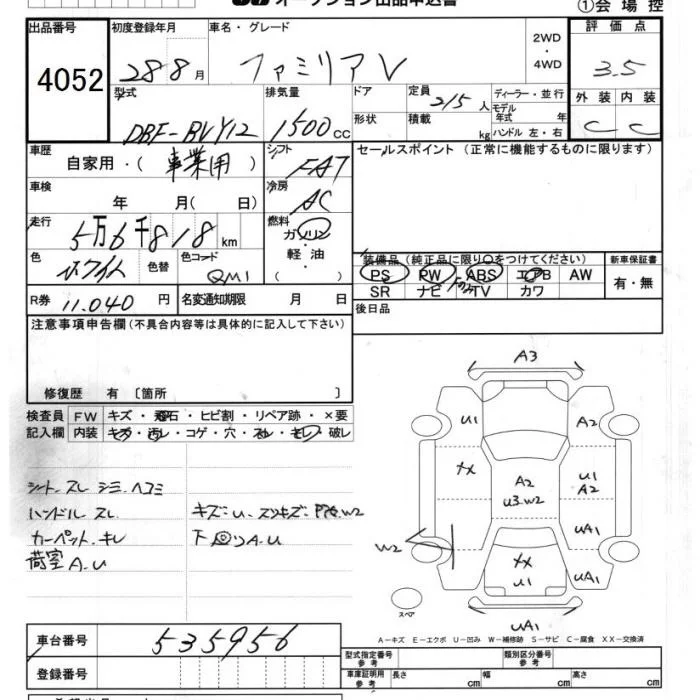 オークション出品申込書
①会場控
出品番号 初度登録年月 車名・グレード 評価点
4052 28 8月 ファミリアV 2WD・4WD 3.5
型式 排気量 ドア 定員 2/5人 ディーラー・並行 外装 内装
DBF-BVY12 1500cc 形状 積載 kg モデル年式 年 ハンドル 左・右 C C
車歴 自家用・(事業用) シフト FAT セールスポイント(正常に機能するものに限ります)
車検 年 月( 日) 冷房 AC
走行 5万6千818km 燃料 ガソリン・軽油・( )
色 ホワイト 色替 色コード QM1
装備品(純正品に限り○をつけてください) 新車保証書
PS PW ABS エアB AW 有・無
SR ナビ TV カワ
R券 11,040円 名変通知期限 月 日 後日品
注意事項申告欄(不具合内容等は具体的に記入して下さい)
修復歴 有 〔箇所 〕
検査員 FW キズ・飛石・ヒビ割・リペア跡・×要
記入欄 内装 キズ・汚レ・コゲ・穴・スレ・キレ・破レ
シート.スレ シミ.ヘコミ
ハンドル スレ. キズ:U.スリキズ:
カーペット.キレ 下回りA.U
荷室 A.U
A3
U1 A2
XX A2 U3.W2 U1 A2
UA1
W2 XX U1 UA1
スペア UA1
A−キズ E−エクボ U−凹み W−補修跡 S−サビ C−腐食 XX−交換済
車台番号 535956 型式指定番号 参考 類別区分番号 参考
登録番号 車庫証明用 参考 長さ cm 幅 cm 高さ cm